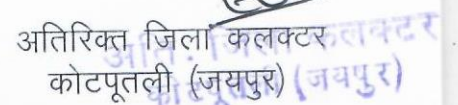 अतिरिक्त जिला कलक्टर
कोटपूतली (जयपुर) (जयपुर)